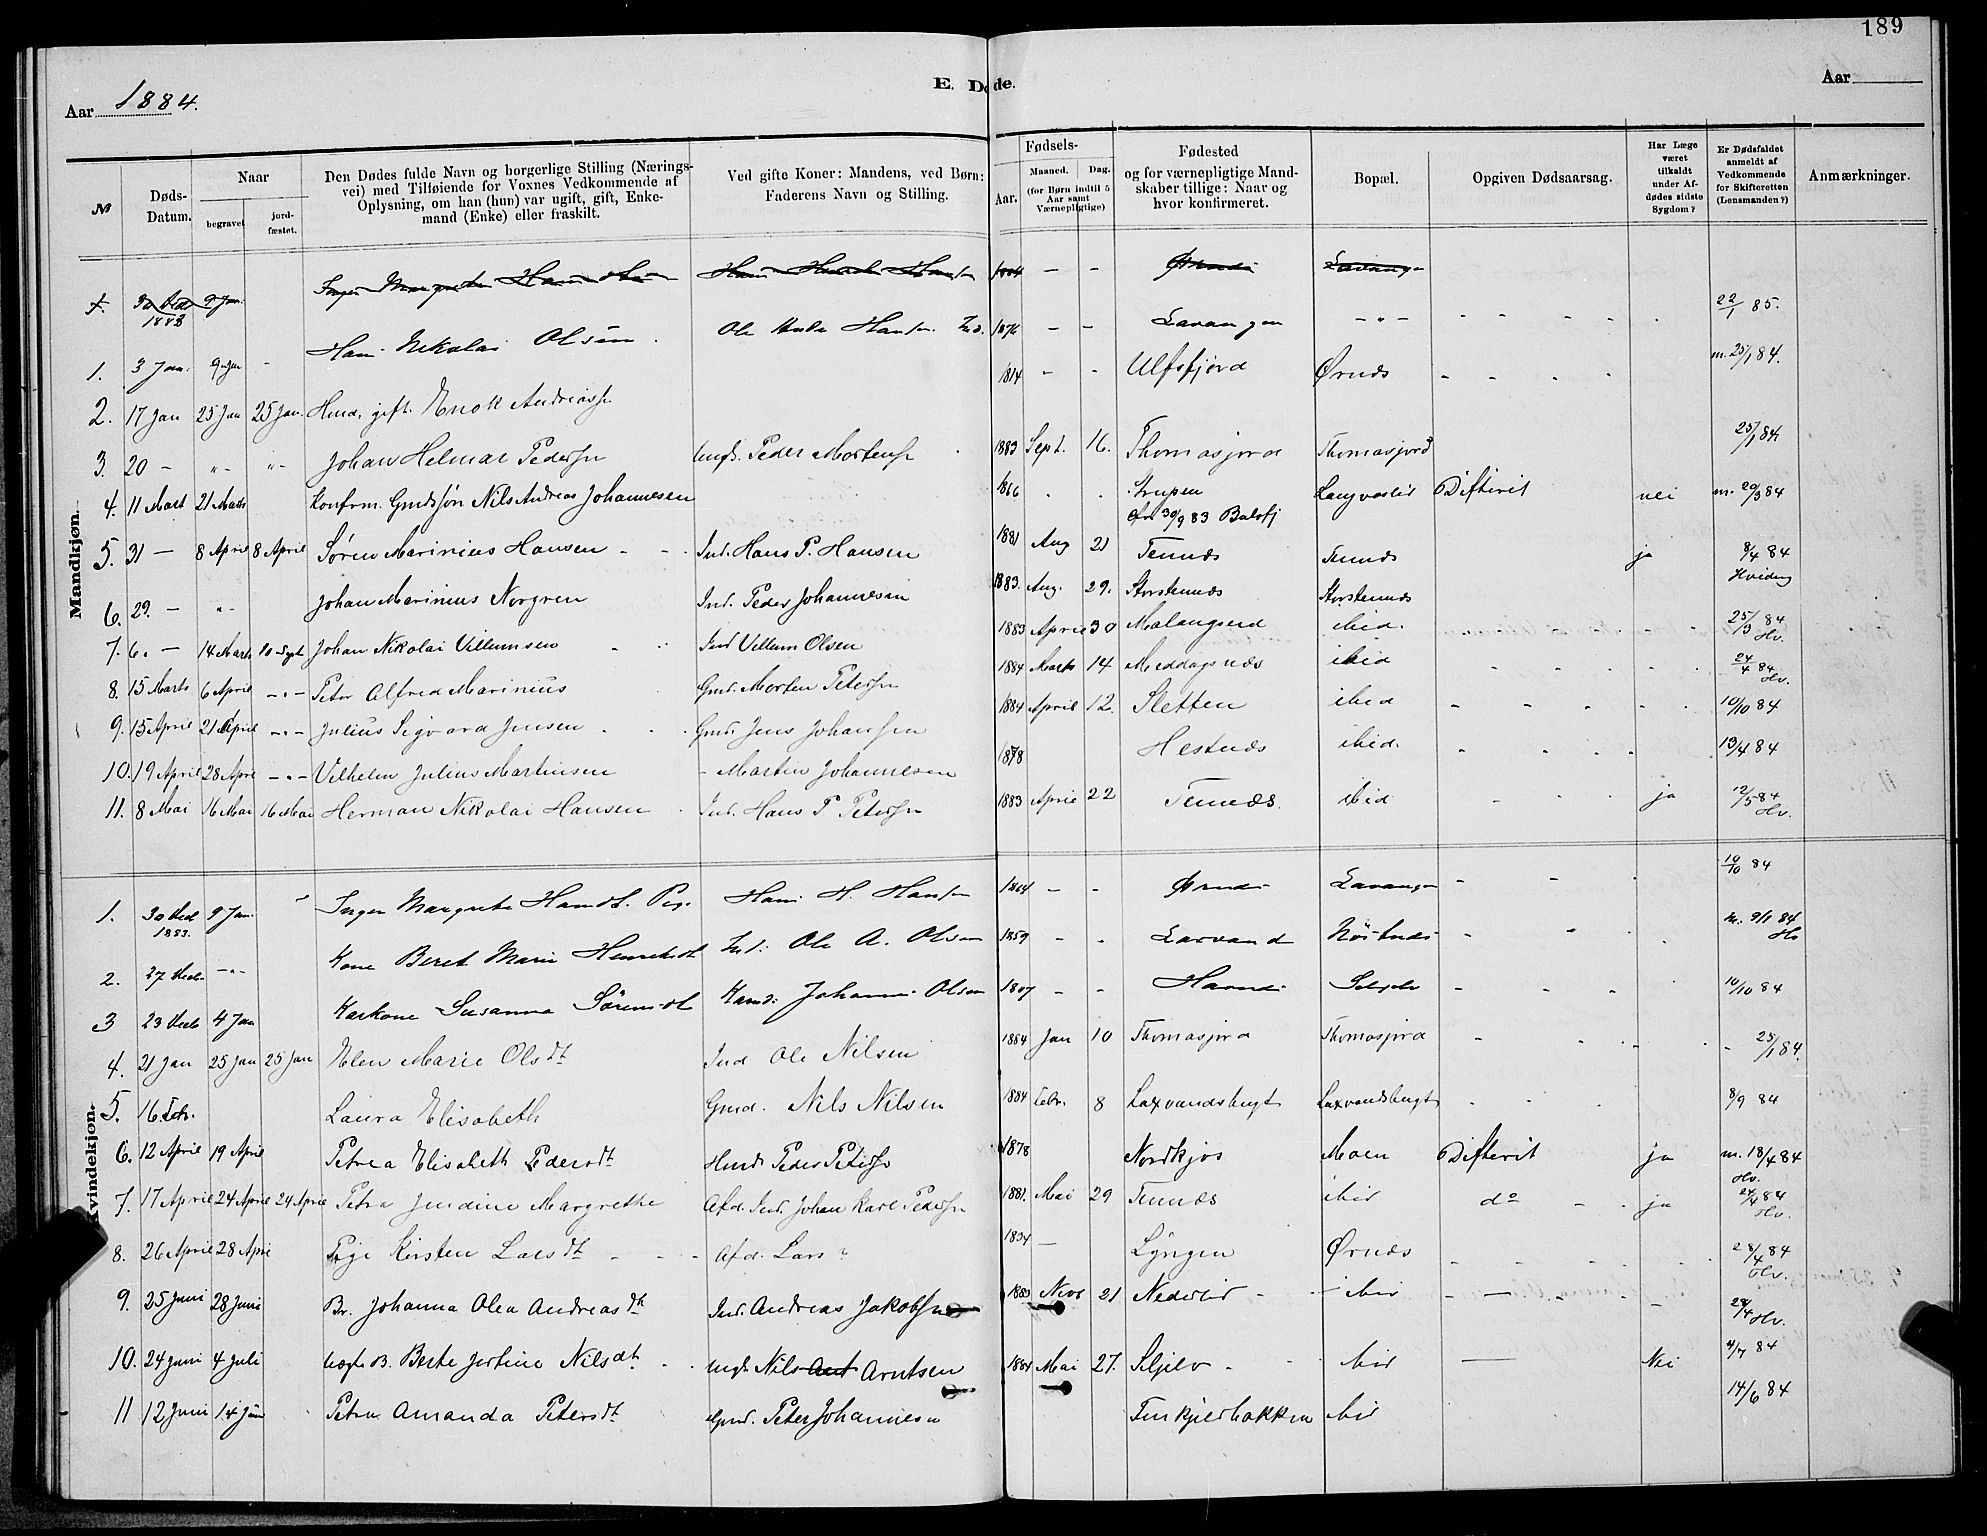 189
Aar 1884.
E. Døde.
Aar
№
Døds-Datum.
Naar
begravet
jord-fæstet.
Den Dødes fulde Navn og borgerlige Stilling (Nærings-
vei) med Tilføiende for Voxnes Vedkommende af
Oplysning, om han (hun) var ugift, gift, Enke-
mand (Enke) eller fraskilt.
Ved gifte Koner: Mandens, ved Børn:
Faderens Navn og Stilling.
Fødsels-
Aar.
Maaned.
Dag.
(for Børn indtil 5
Aar samt
Værnepligtige)
Fødested
og for værnepligtige Mand-
skaber tillige: Naar og
hvor konfirmeret.
Bopæl.
Opgiven Dødsaarsag.
Har Læge
været
tilkaldt
under Af-
dødes sidste
Sygdom?
Er Dødsfaldet
anmeldt af
Vedkommende
for Skifteretten
(Lensmanden?)
Anmærkninger.
Mandkjøn.
1. 30 Dec 1883 9 Jan. Inger Margrete Hansdt Hans Hansen 1864 - - Ørnæs Lavangen
1. 3 Jan. 9 Jan - Hans Nikolai Olsen. Ole Hansen Ind. 1876 - - Lavangen -"- - - - - 22/1 85.
2. 17 Jan 25 Jan 25 Jan. Hmd. gift. Enok Andreass. 1814 - - Ulfsfjord Ørnæs - - - - m. 25/1 84.
3. 20 - "- "- Johan Helmar Peders. ungk. Peder Mortens. 1883 Sept. 16. Thomasjord Thomasjord 25/1 84
4. 11 Mart 21 Marts Konfrm. Gmdssøn Nils Andreas Johannesen 1866 . . Strupen Langvaslid Difterit nei m. 20/3 84
30/9 83 Balsfj
5. 31 - 8 April 8 April Søren Marinius Hansen - - Ind. Hans P. Hansen 1881 Aug 21 Tennæs Tennæs ja 8/4 84
6. 29. - "- Johan Marinius Norgren Ind. Peder Johannesen 1883. Aug. 29. Storstennæs Storstennæs Hviding
7. 6. - 14 Marts 10 Sept Johan Nikolai Villumsen Ind Villum Olsen 1883 April 30 Malangseid ibid. 25/3 84 Hv.
8. 15 Marts 6 April -"- Peter Alfred Marinius Gmd. Morten Peters. 1884 Marts 14 Middagsnæs ibid - - - - 24/4 84 Hv.
9. 15 April 21 April -"- Julius Sigvard Jensen Gmd Jens Johansen 1884 April 12. Sletten ibid - - - - 10/10 84
10. 19 April 28 April -"- Vilhelm Julius Martinsen - Martin Johannesen 1878 Hestnæs ibid. - - - - 13/4 84
11. 8 Mai 16 Mai 16 Mai Herman Nikolai Hansen Ind. Hans P Peters. 1883 April 22 Tennæs. ibid - - ja 12/5 84 Hv.
Kvindekjøn.
1. 30 Dec 1883. 9 Jan. " Inger Margrete Hansdt. Pige Hans H. Hansen 1864 - - Ørnæs Lavangen - - 10/10 84
2. 27 Dec. -"- Kone Beret Marie Henriksdt Ind: Ole A. Olsen 1859 - - Laxvand Nøstnæs - - . m. 9/1 84 Hv
3 23 Dec 4 Jan Karkone Susanna Sørensdt Kaard: Johannes Olsen 1807 - - Havnæs Seljelv - - - 10/10 84
4. 21 Jan 25 Jan 25 Jan Elen Marie Olsdt Ind Ole Nilsen 1884 Jan 10 Thomasjord Thomasjord - - - - 25/1 84.
5. 16. Febr. Laura Elisabeth Gmd. Nils Nilsen 1884 Febr. 8 Laxvandsbugt Laxvandsbugt - - . 8/9 84
6. 12 April 19 April Petrea Elisabeth Pedersdt Hmd. Peder Peters. 1878 Nordkjos Moen Difterit ja m. 18/4 84 Hv.
7. 17 April 24 April 24 April Petra Jendine Margrethe Afd. Ind. Johan Karl Peders. 1881. Mai 29 Tennæs ibid do - - ja 24/4 84 Hv.
8. 26 April 28 April Pige Kirsten Larsdt - - - Afd. Lars ? 1834 - Lyngen Ørnæs - - - - - 28/4 84 Hv.
9. 25 Juni 28 Juni Br. Johanna Olea Andreasdt Ind. Andreas Jakobsen 1883 Novr 21 Nedslid - - ibid - - - - - 28/4 Hv.
10. 24 Juni 4 Juli uægte B. Berte Jostine Nilsdt - - ungk Nils Ant Arntsen 1884 Mai 27. Seljelv - - ibid - Nei 4/7 84
11 12 Juni 14 Juni Petra Amanda Petersdt Gmd. Peter Johannesen Tenkjelsbakken ibid 14/6 84